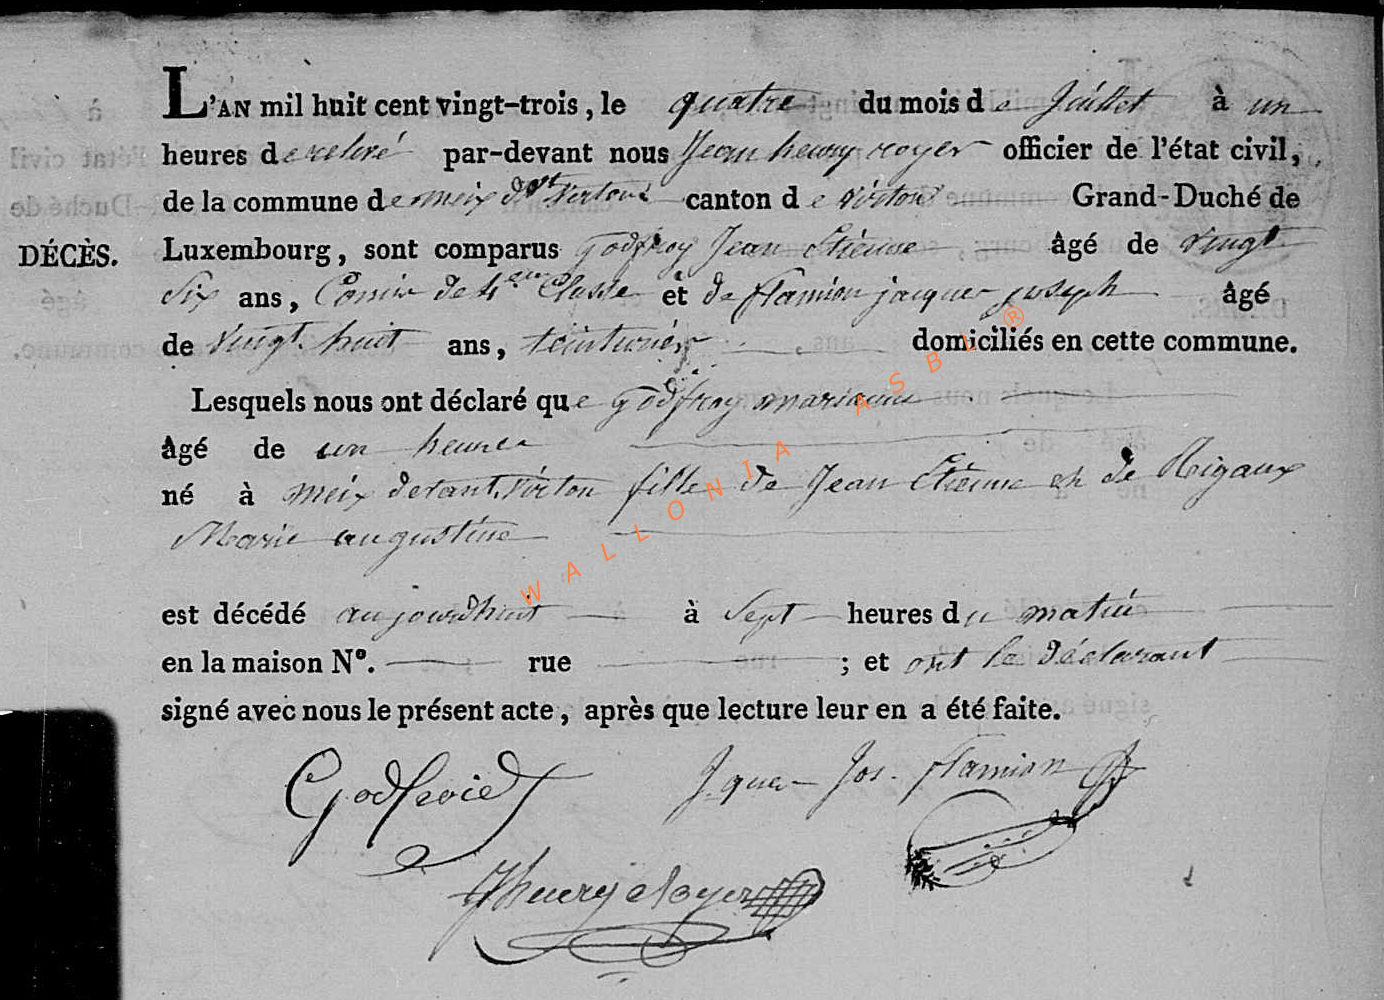 L'AN mil huit cent vingt-trois, le quatre du mois de Juillet à un
heures de relevé par-devant nous Jean henry royer officier de l'état civil,
de la commune de meix dvt virton canton de virton Grand-Duché de
DÉCÈS. Luxembourg, sont comparus Godfroy Jean Etienne âgé de vingt
Six ans, Comis de 4eme Classe et de flamion jacques joseph âgé
de vingt huit ans, teinturier domiciliés en cette commune.
Lesquels nous ont déclaré que godfroy marianne
âgé de un heure
né à meix devant virton fille de Jean Etienne et de Rigaux
Marie augustine
est décédé aujourdhuit à Sept heures du matin
en la maison N°. rue ; et ont le déclarant
signé avec nous le présent acte, après que lecture leur en a été faite.
Godfroid Jques Jos. flamion
Jhenry Royer
WALLONIA ASBL ®